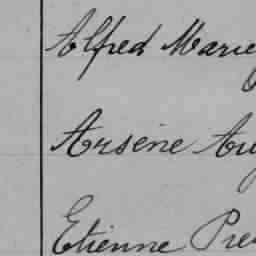 Alfred Marie
Arsène Au
Etienne Pre